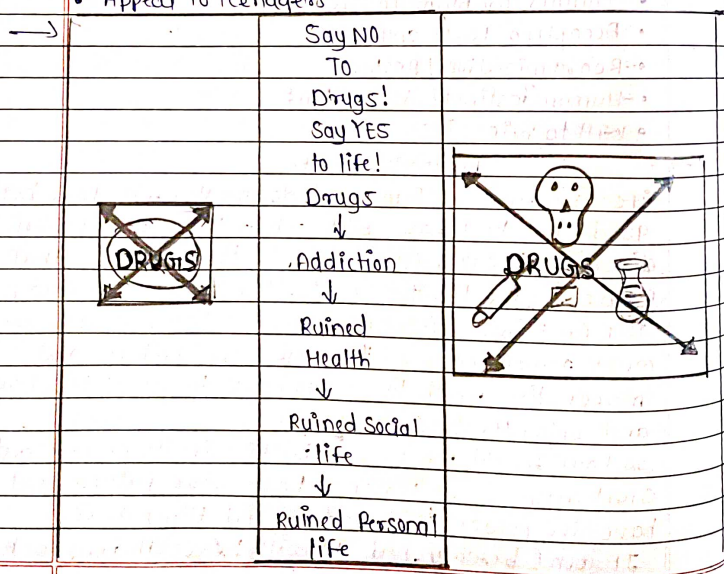 • Appeal to teenagers
Say NO
TO
Drugs!
Say YES
to life!
Drugs
↓
Addiction
↓
Ruined
Health
↓
Ruined Social
life
↓
Ruined Personal
life
DRUGS
DRUGS